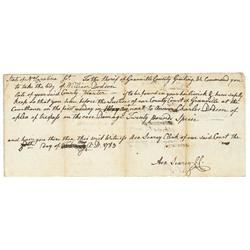 State of No Carolina Sct. To the Sheriff of Granville County Greeting We Command you
to take the body of William Dodson
late of your said County Planter if to be found in your bailiwick & him safely
keep so that you have before the Justices of our County Court of Granville at the
Courthouse on the first Monday in May next to answer Charles Dodson of
a plea of trespass on the case Damage Twenty pounds Specie
and have you then there this writ Witness Asa Searcy Clerk of our said Court the
Day of A.D. 1783
Asa Searcy CC